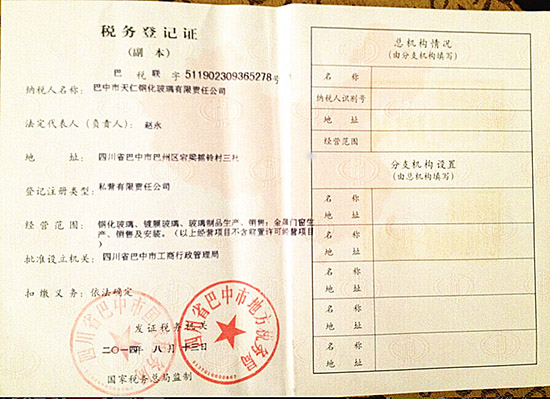 税务登记证
(副 本)
巴 税 联 字 511902309365278号
纳税人名称: 巴中市天仁钢化玻璃有限责任公司
法定代表人(负责人): 赵永
地 址: 四川省巴中市巴州区宕梁 铃村三社
登记注册类型: 私营有限责任公司
经营范围: 钢化玻璃、镀膜玻璃、玻璃制品生产、销售; 金属门窗生
产、销售及安装。(以上经营项目不含前置许可经营项目
)
批准设立机关: 四川省巴中市工商行政管理局
扣缴义务: 依法确定
发证税务机关
二〇一四年 八月 十三日
国家税务总局监制
四川省巴中市国家税务局
四川省巴中市地方税务局
总机构情况
(由分支机构填写)
名 称
纳税人识别号
地 址
经营范围
分支机构设置
(由总机构填写)
名 称
地 址
名 称
地 址
名 称
地 址
名 称
地 址
名 称
地 址